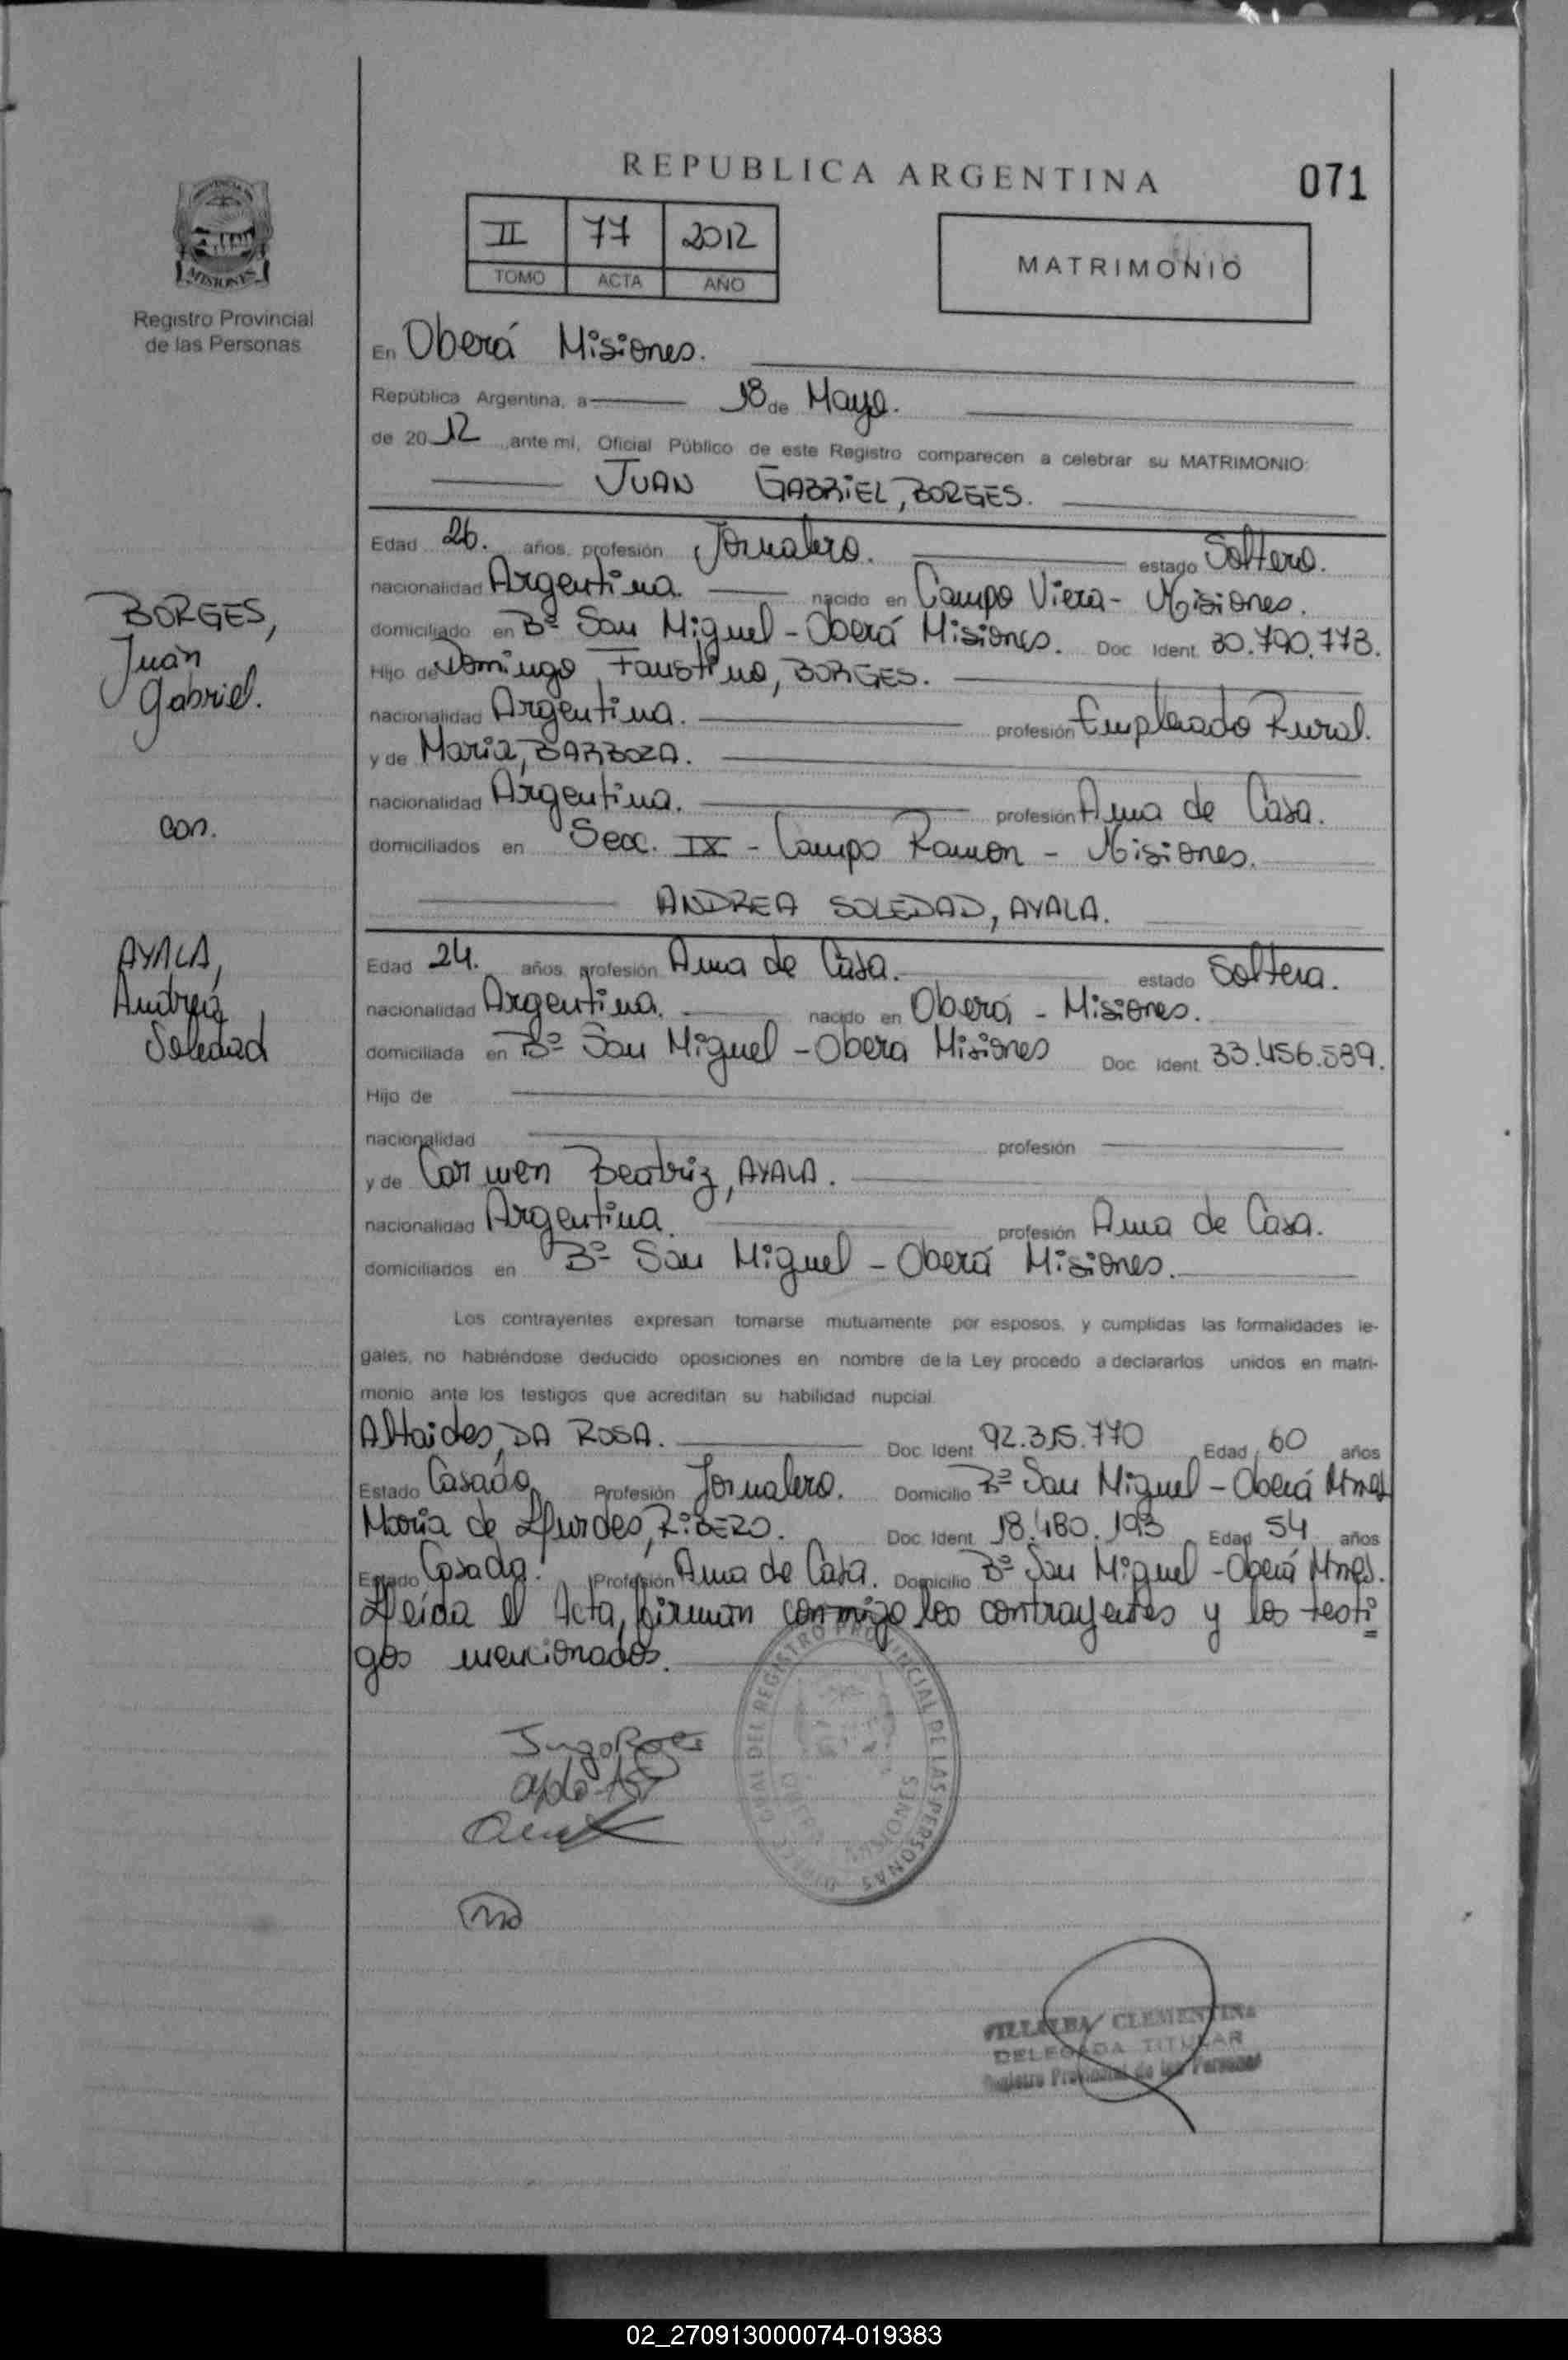 REPUBLICA ARGENTINA
071
II 77 2012
TOMO ACTA AÑO
MATRIMONIO
MISIONES
Registro Provincial
de las Personas
En Oberá Misiones.
República Argentina, a 18 de Mayo.
de 2012 ante mi, Oficial Público de este Registro comparecen a celebrar su MATRIMONIO:
JUAN GABRIEL, BORGES.
Edad 26. años, profesión Jornalero. estado Soltero.
nacionalidad Argentina. nacido en Campo Viera - Misiones.
domiciliado en Bº San Miguel - Oberá Misiones. Doc. Ident. 30.790.773.
Hijo de Domingo Faustino, BORGES.
nacionalidad Argentina. profesión Empleado Rural.
y de Maria, BARBOZA.
nacionalidad Argentina. profesión Ama de Casa.
domiciliados en Secc. IX - Campo Ramon - Misiones.
ANDREA SOLEDAD, AYALA.
Edad 24. años, profesión Ama de Casa. estado Soltera.
nacionalidad Argentina. nacido en Oberá - Misiones.
domiciliada en Bº San Miguel - Obera Misiones Doc. Ident. 33.456.589.
Hijo de
nacionalidad profesión
y de Carmen Beatriz, AYALA.
nacionalidad Argentina. profesión Ama de Casa.
domiciliados en Bº San Miguel - Oberá Misiones.
Los contrayentes expresan tomarse mutuamente por esposos, y cumplidas las formalidades le-
gales, no habiéndose deducido oposiciones en nombre de la Ley procedo a declararlos unidos en matri-
monio ante los testigos que acreditan su habilidad nupcial.
Altaides, DA ROSA. Doc. Ident. 92.315.770 Edad 60 años
Estado Casado. Profesión Jornalero. Domicilio Bº San Miguel - Oberá Mnes
Maria de Llurdes, RiBERO. Doc. Ident. 18.480.193 Edad 54 años
Estado Casada. Profesión Ama de Casa. Domicilio Bº San Miguel - Oberá Mnes.
Lleída el Acta, firman conmigo los contrayentes y los testi=
gos mencionados.
BORGES,
Juan
Gabriel.
con.
AYALA,
Andrea
Soledad
DIRECC. GRAL DEL REGISTRO PROVINCIAL DE LAS PERSONAS
MISIONES
VILLALBA CLEMENTINA
DELEGADA TITULAR
Registro Provincial de las Personas
02_270913000074-019383